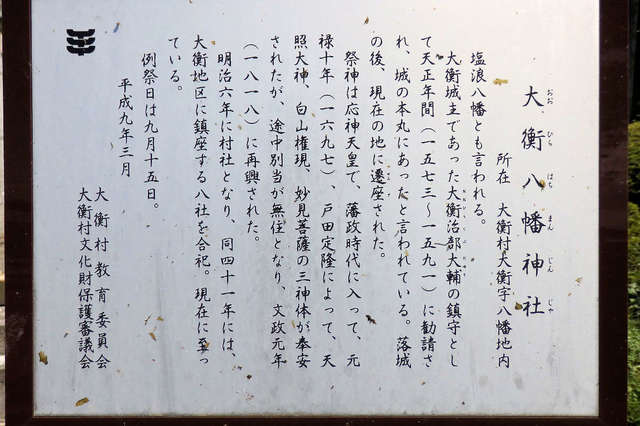 大衡八幡神社
おおひらはちまんじんじゃ
所在 大衡村大衡字八幡地内
塩浪八幡とも言われる。
大衡城主であった大衡治部大輔の鎮守とし
て天正年間（一五七三～一五九一）に勧請さ
れ、城の本丸にあったと言われている。落城
の後、現在の地に遷座された。
祭神は応神天皇で、藩政時代に入って、元
禄十年（一六九七）、戸田定隆によって、天
照大神、白山権現、妙見菩薩の三神体が奉安
されたが、途中別当が無住となり、文政元年
（一八一八）に再興された。
明治六年に村社となり、同四十一年には、
大衡地区に鎮座する八社を合祀。現在に至っ
ている。
例祭日は九月十五日。
平成九年三月
大衡村教育委員会
大衡村文化財保護審議会